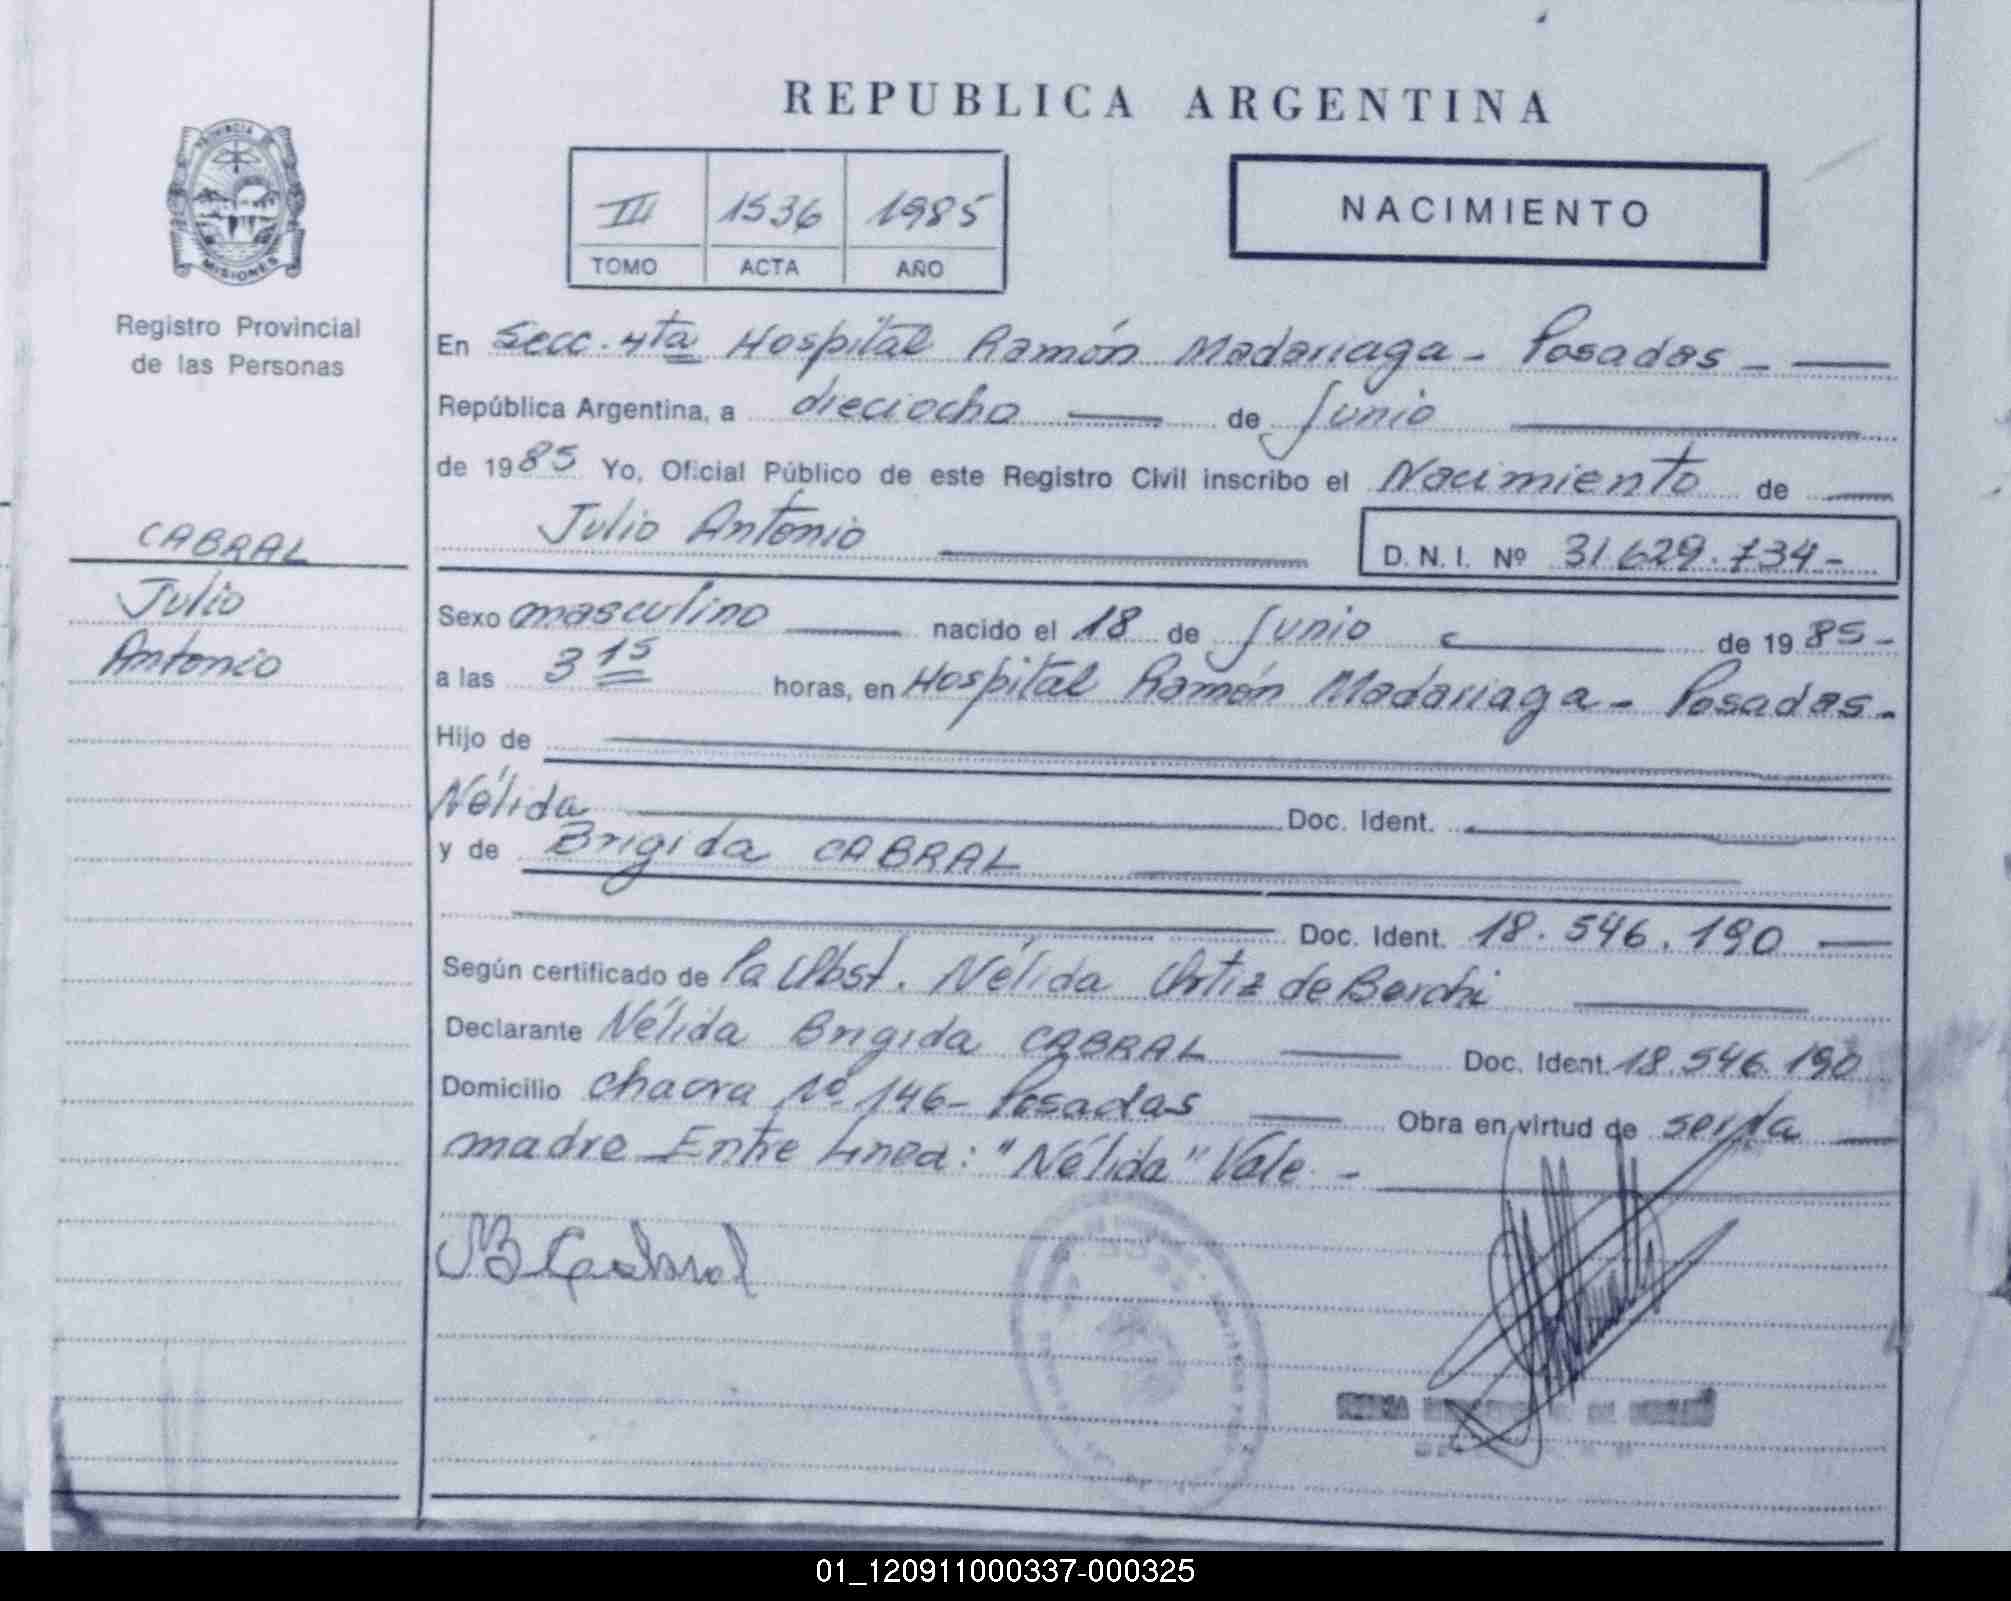 REPUBLICA ARGENTINA
PROVINCIA
MISIONES
Registro Provincial
de las Personas
III 1536 1985
TOMO ACTA AÑO
NACIMIENTO
En Secc. 4ta Hospital Ramón Madariaga - Posadas -
República Argentina, a dieciocho de Junio
de 1985 Yo, Oficial Público de este Registro Civil inscribo el Nacimiento de
Julio Antonio D. N. I. Nº 31.629.734-
CABRAL
Julio
Antonio
Sexo masculino nacido el 18 de Junio de 1985-
a las 3 15 horas, en Hospital Ramón Madariaga - Posadas-
Hijo de
Nélida Doc. Ident.
y de Brigida CABRAL
Doc. Ident. 18.546.190
Según certificado de la Obst. Nélida Ortiz de Berchi
Declarante Nélida Brigida CABRAL Doc. Ident. 18.546.190
Domicilio chacra Nº 146- Posadas Obra en virtud de ser la
madre Entre linea: "Nélida" Vale. -
NB Cabral
01_120911000337-000325